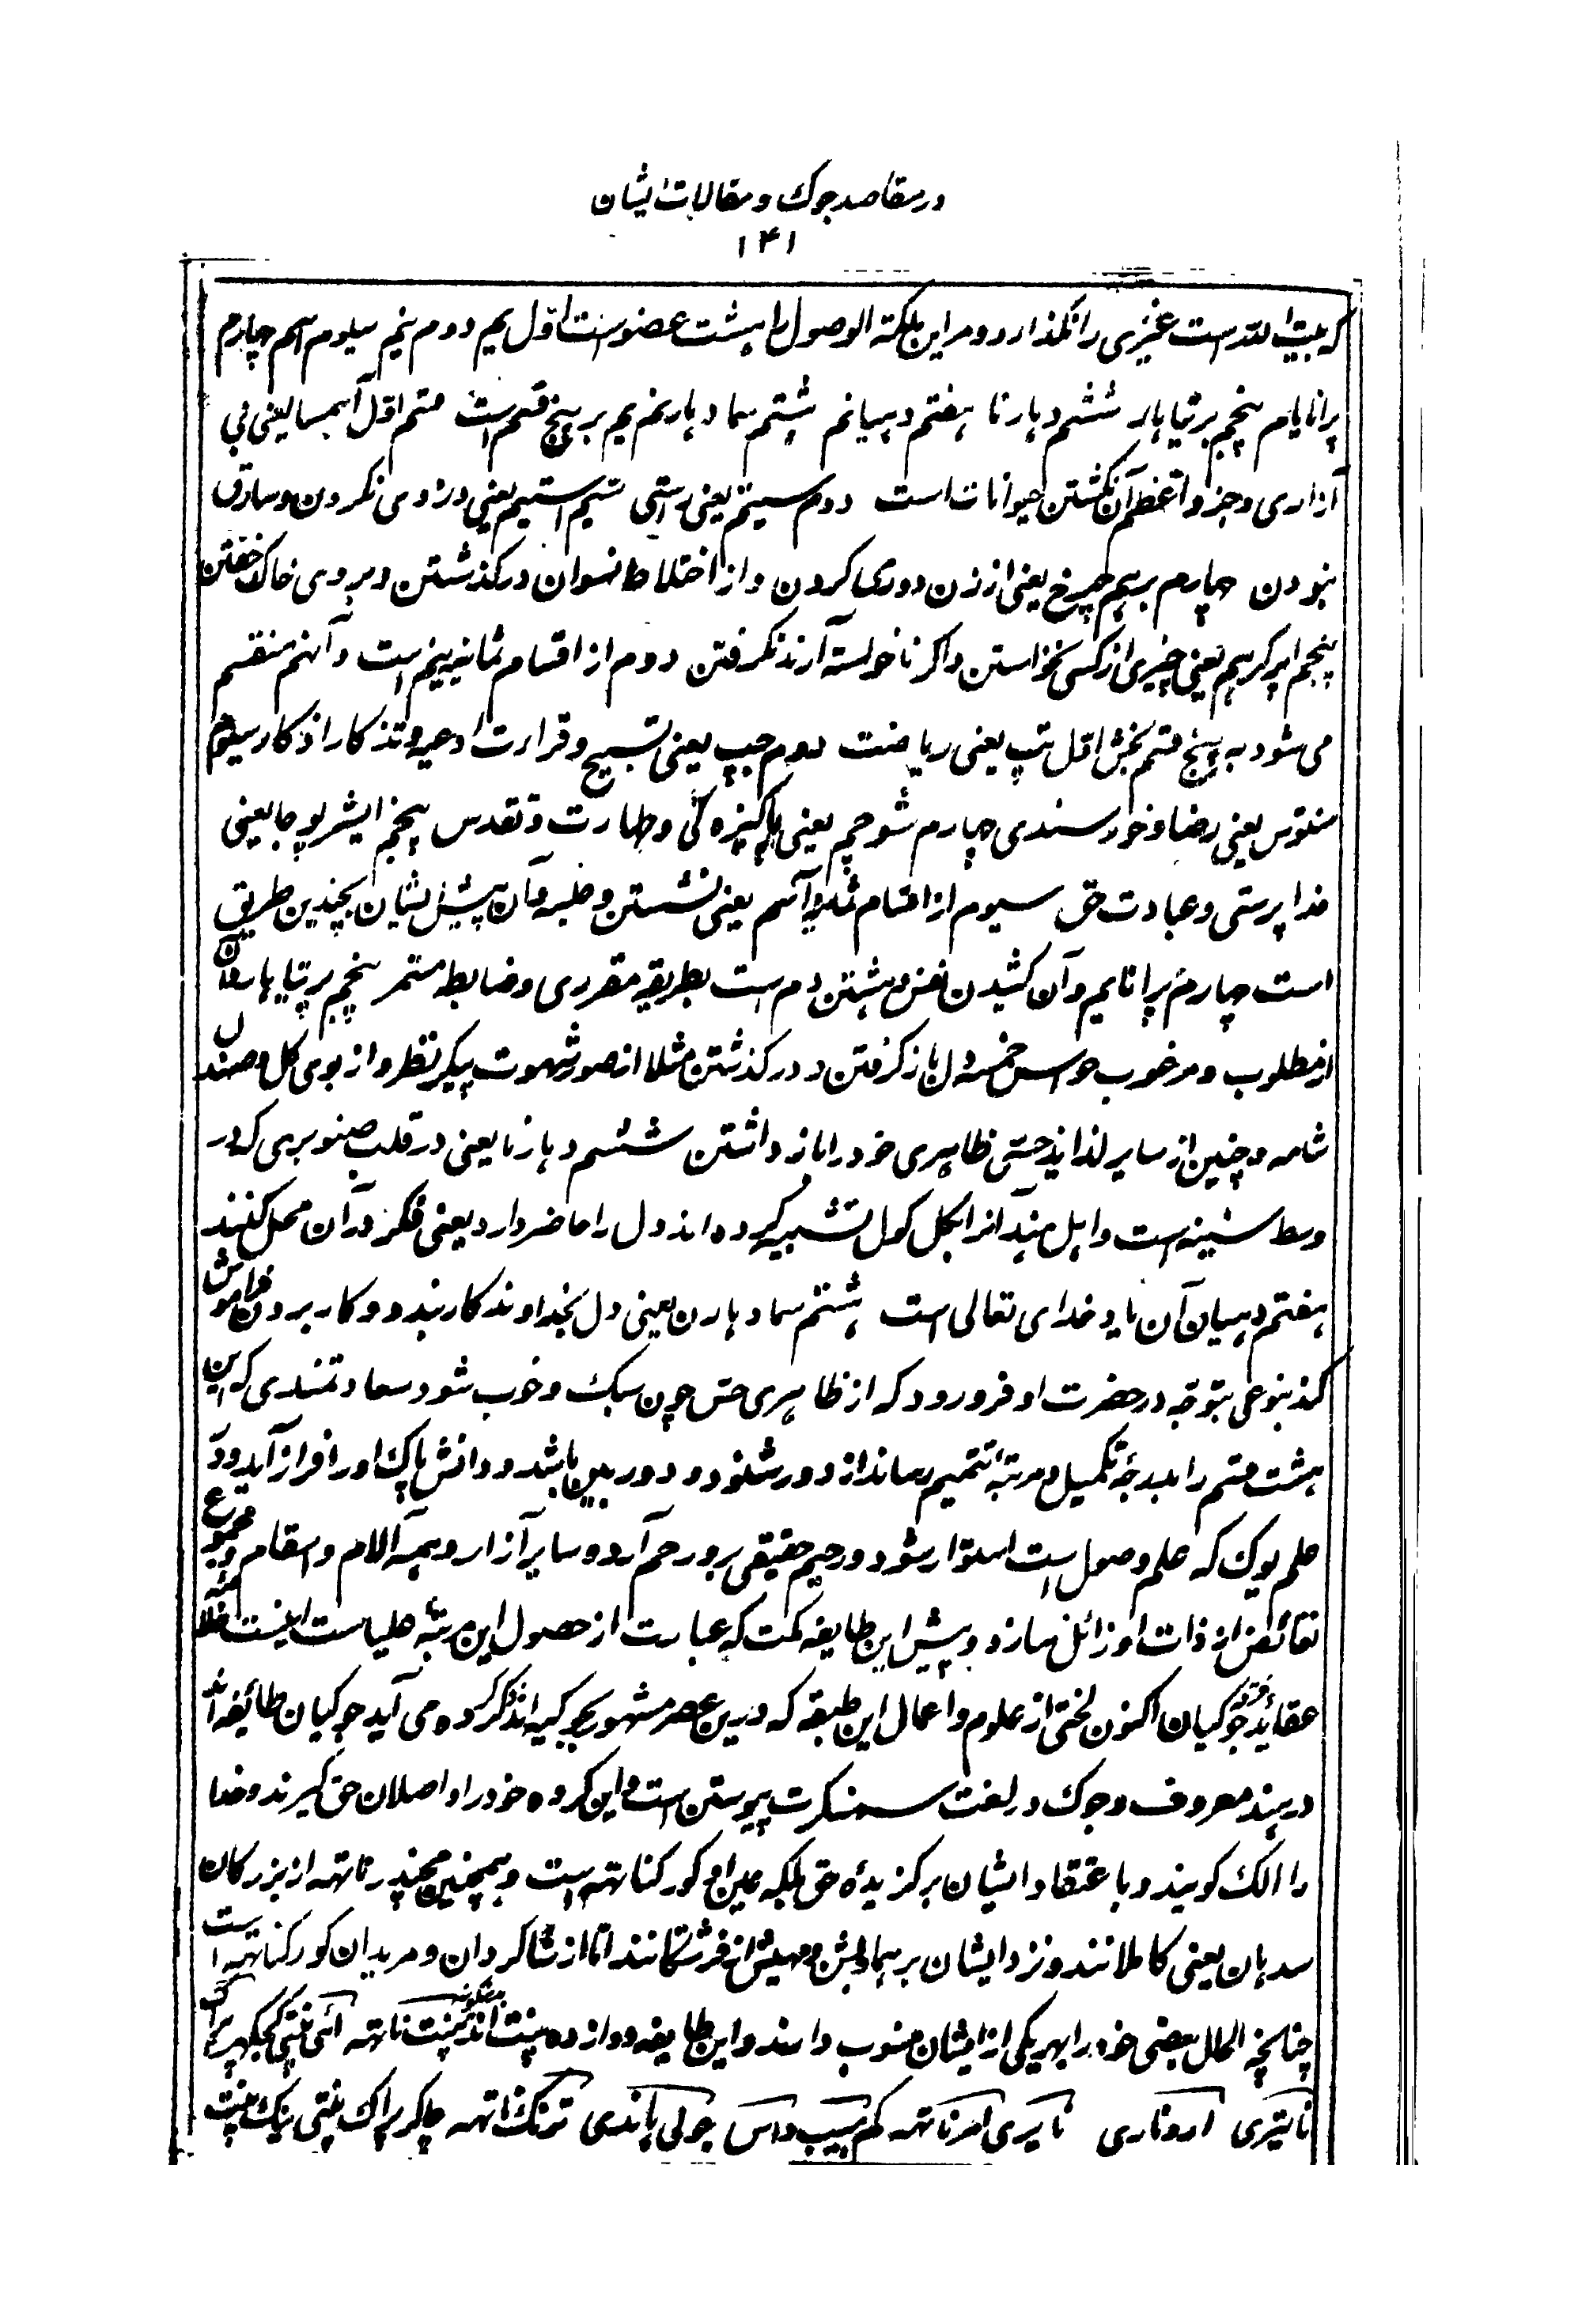 در مقاصد جوک و مقالات ایشان
۱۴۱
که بیت الله است غیری را نگذارد و مر این بلکته الوصول را هشت عضو است اول یم دوم نیم سیوم اسم چهارم
پرانایام پنجم برتیاهار ششم دهارنا هفتم دهیانم هشتم سمادهارنم یم بر پنج قسم است قسم اول اهمسا یعنی بی
آزاری و جزو اعظم آن نکشتن حیوانات است دوم ستیم یعنی راستی سیم استیم یعنی دزدی نکردن و سارق
نبودن چهارم برهم چرج یعنی از زن دوری کردن و از اختلاط نسوان درکذشتن و بر وی خاک خفتن
پنجم اپرکرهم یعنی چیزی از کسی نخواستن و اکر ناخواسته آرند نکرفتن دوم از اقسام ثمانیه نیم است و آنهم منقسم
می شود به پنج قسم بخش اول تپ یعنی ریاضت دوم جپ یعنی تسبیح و قراءت ادعیه و تذکار اذکار سیوم
سنتوس یعنی رضا و خورسندی چهارم شوچم یعنی پاکیزه کی و طهارت و تقدس پنجم ایشر پوجا یعنی
خدا پرستی و عبادت حق سیوم از اقسام ثمانیه آسم یعنی نشستن و جلسه و آن پیش ایشان بچندین طریق
است چهارم پرانایم و آن کشیدن نفس و هشتن دم است بطریقه مقرری و ضابطه مستمر پنجم برتیاهار و آن
از مطلوب و مرغوب حواس خمسه دل باز کرفتن و در کذشتن مثلا از صور شهوت پیکر نظر و از بوی کل و صندل
شامه و چنین از سایر لذایذ حسی ظاهری خود را باز داشتن ششم دهارنا یعنی در قلب صنوبری که در
وسط سینه است و اهل هند آنرا بکل کول تشبیه کرده اند دل را حاضر دارد یعنی فکر در آن محل کنند
هفتم دهیان آن یاد خدای تعالی است هشتم سمادهارن یعنی دل بخداوند کار بندد و کار بردن فراموش
کند بنوعی بتوجه در حضرت او فرو رود که از ظاهری حس چون سبک و خوب شود سعادتمندی که این
هشت قسم را بدرجه تکمیل و مرتبه تتمیم رساند از دور شنود و دور بین باشد و دانش پاک او را فراز آید و در
علم یوک که علم وصول است استوار شود و رحیم حقیقی برو رحم آرد و سایر آزار و همه آلام و اسقام و مجموع
نقائص از ذات او زائل سازد و پیش این طایفه مکت که عبارت از حصول این رتبه علیاست اینست خلاصه
عقائد فرقه جوکیان اکنون لختی از علوم و اعمال این طبقه که درین عصر مشهور بجوکیه اند ذکر کرده می آید جوکیان طائفه اند
در هند معروف و جوک در لغت سهنسکرت پیوستن است و این کروه خود را واصلان حق کیرند و خدا
را الک کویند و باعتقاد ایشان برکزیده حق بلکه عین او کورکناتهه است و همچنین مچندرناتهه از بزرکان
سدهان یعنی کاملانند و نزد ایشان برهما و بشن و مهیش از فرشتکانند اما از شاکردان و مریدان کورکناتهه است
چنانچه الحال بعضی خود را بهر یکی از ایشان منسوب دارند و این طایفه دوازده پنت اند
نانتیری ارونا‌ری نایری امرناتهه کم بهیب داس چولی پاندی ترنک ناتهه چاکر پراک پنتی